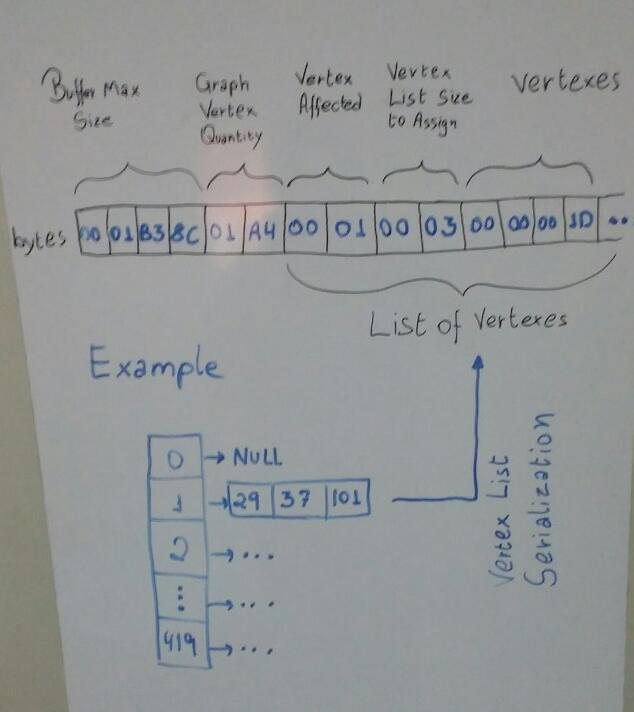 Buffer Max
Size
Graph
Vertex
Quantity
Vertex
Affected
Vertex
List Size
to Assign
Vertexes
bytes 00 01 B3 8C 01 A4 00 01 00 03 00 00 00 1D ..
List of Vertexes
Example
0 → NULL
1 → 29 37 101
2 → ...
... → ...
419 → ...
Vertex List
Serialization